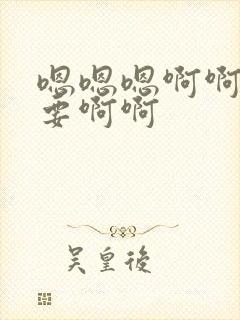 嗯嗯嗯啊啊
要啊啊
吴皇後